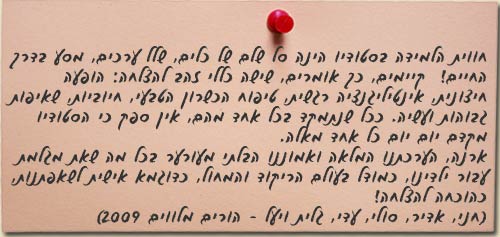 חווית הלמידה בסטודיו הינה סל שלם של כלים, שלל ערכים, מסע בדרך
החיים! קיימים, כך אומרים, שישה כללי זהב להצלחה: הופעה
חיצונית, אינטליגנציה רגשית, טיפוח הכשרון הטבעי, חיוביות, שאיפות
גבוהות ועשיה. ככל שנתמקד בכל אחד מהם, אין ספק כי הסטודיו
מקדם יום יום כל אחד מאלה.
ארנה, הערכתנו המלאה ואמוננו הבלתי מעורער בכל מה שאת מגלמת
עבור ילדינו, כמודל בעולם הריקוד והמחול, כדוגמא אישית לשאפתנות,
כהוכחה להצלחה!
(חני, אדיר, סולי, עדי, גלית ויעל - הורים מלווים 2009)